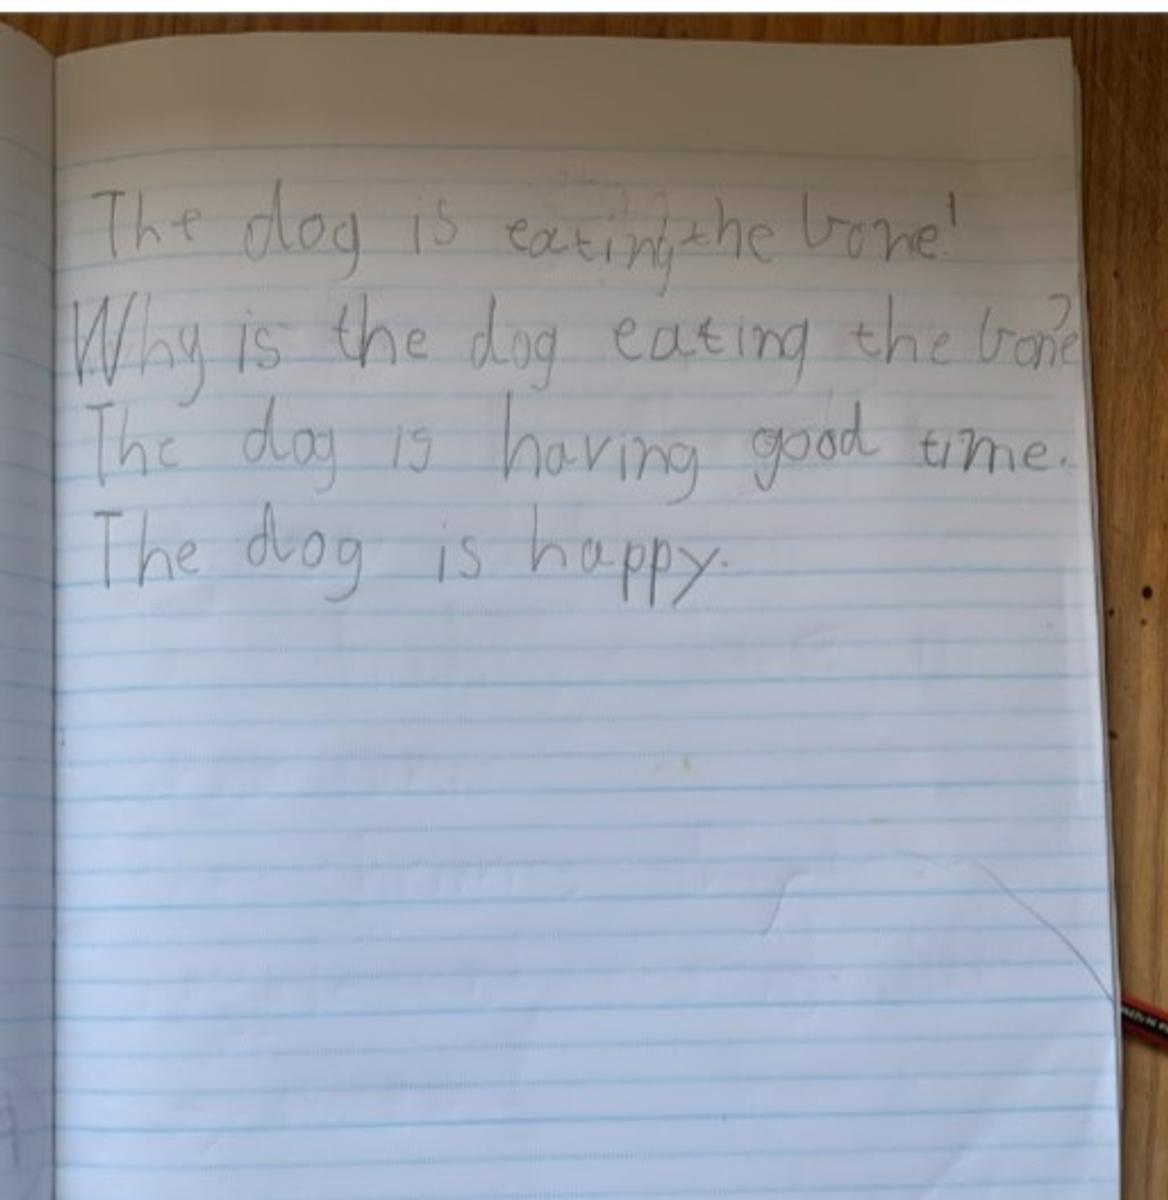 The dog is eating the bone!
Why is the dog eating the bone?
The dog is having good time.
The dog is happy.